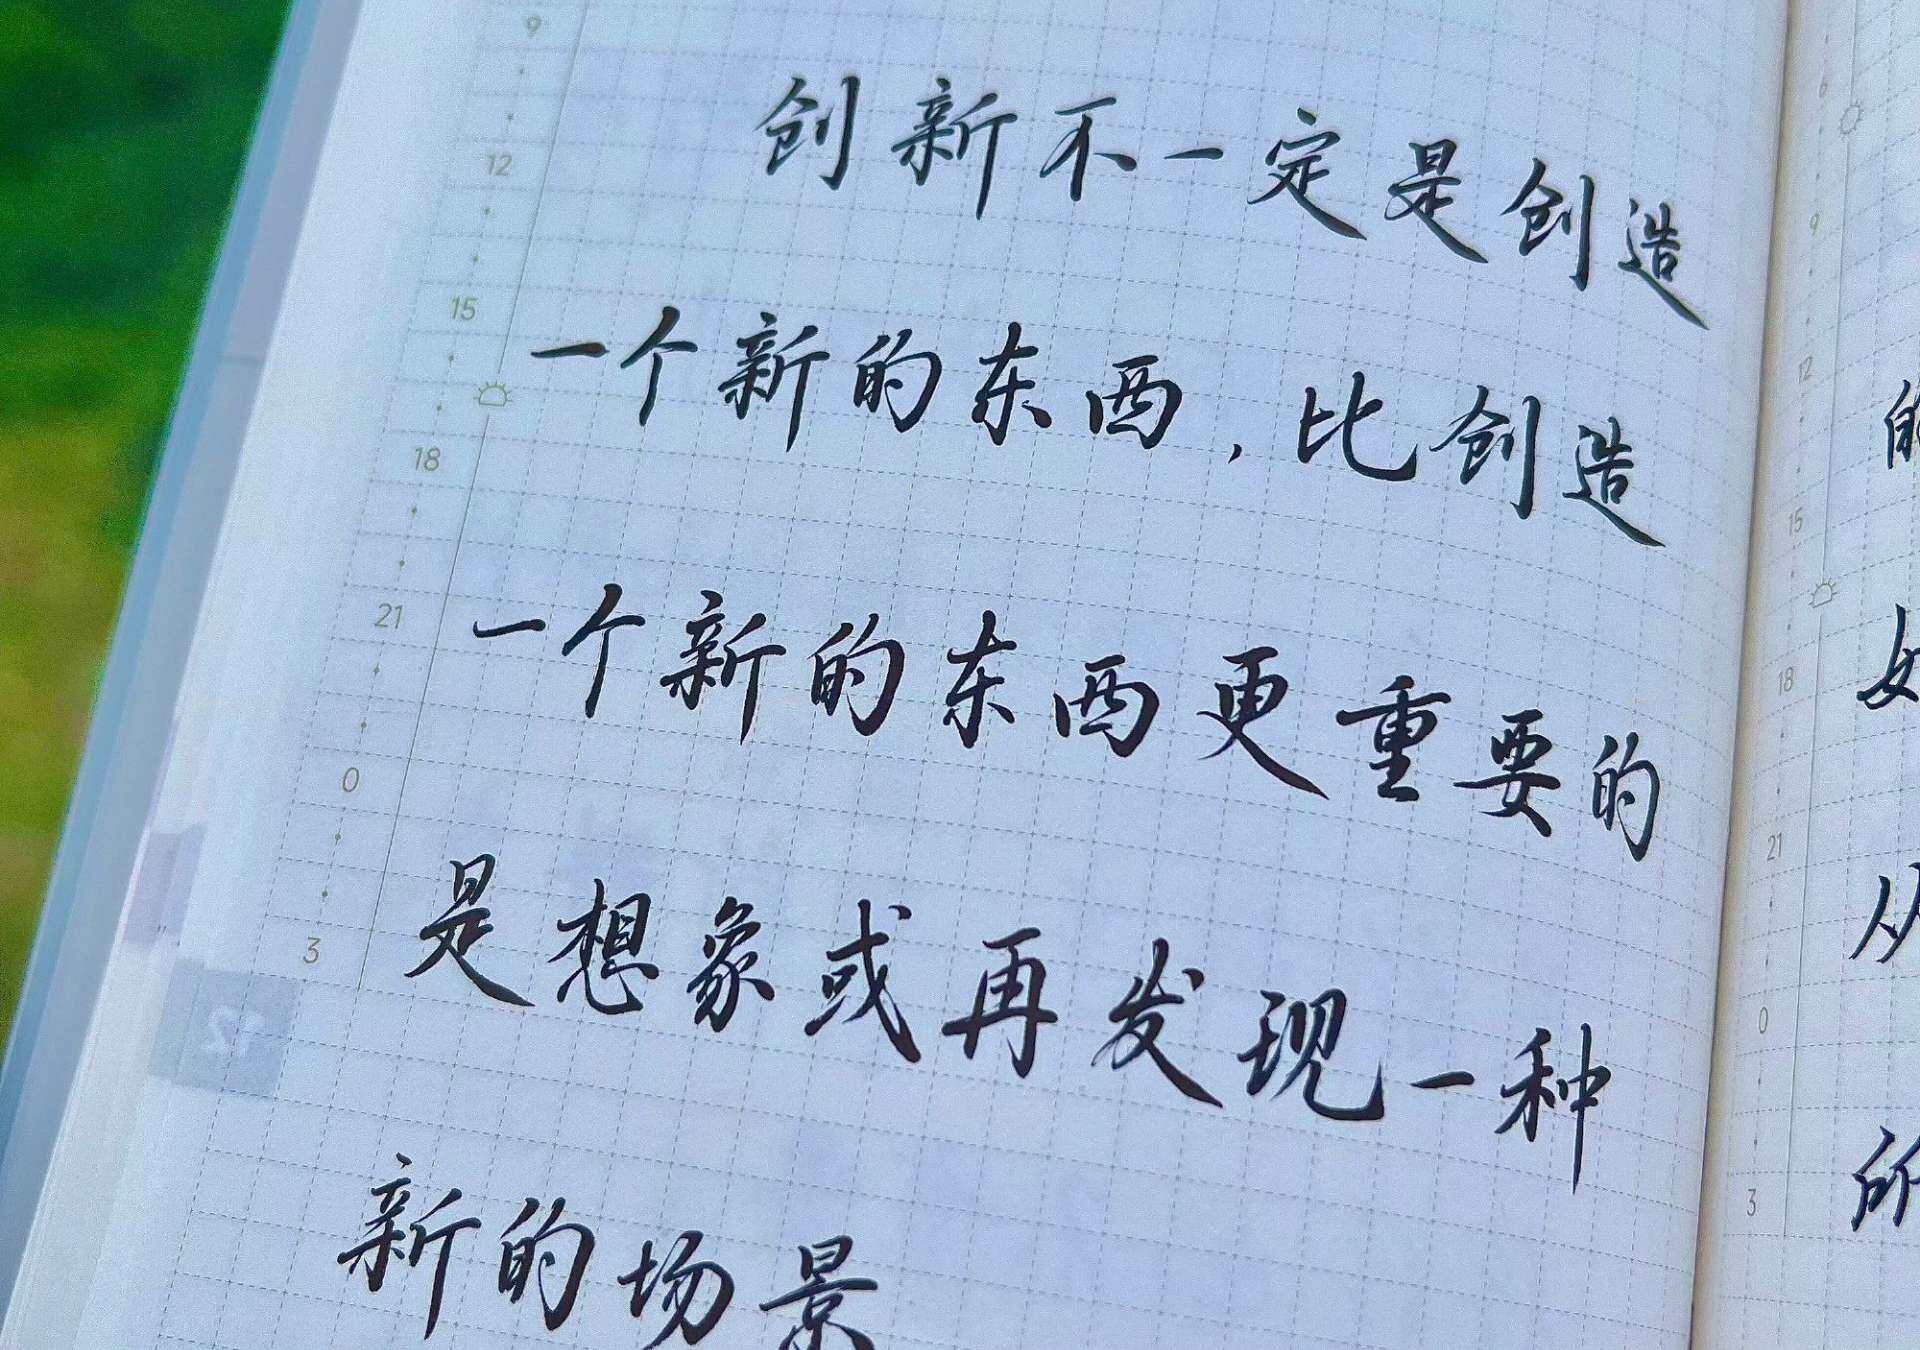 9
12
15
18
21
0
3
创新不一定是创造
一个新的东西，比创造
一个新的东西更重要的
是想象或再发现一种
新的场景
12
6
9
12
15
18
21
0
3
的
从
所